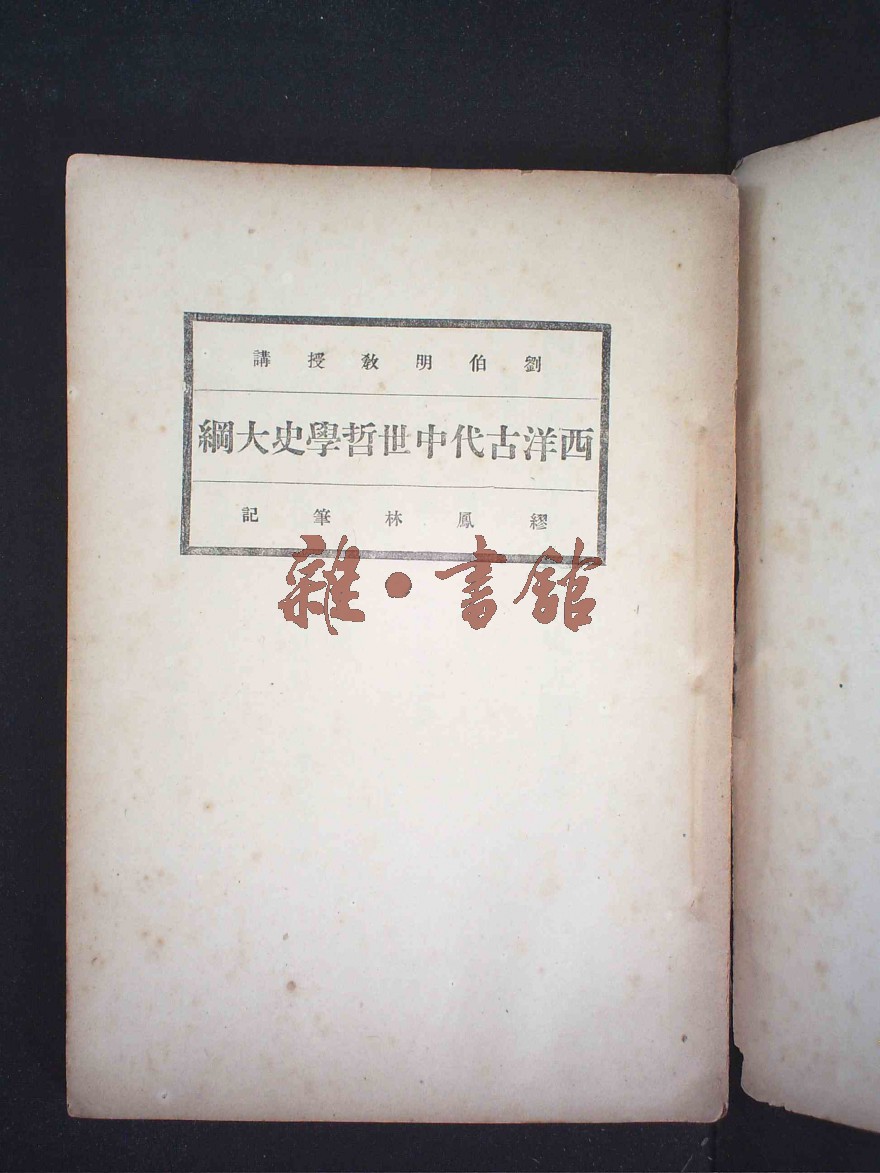 劉伯明教授講
西洋古代中世哲學史大綱
繆鳳林筆記
雜·書館